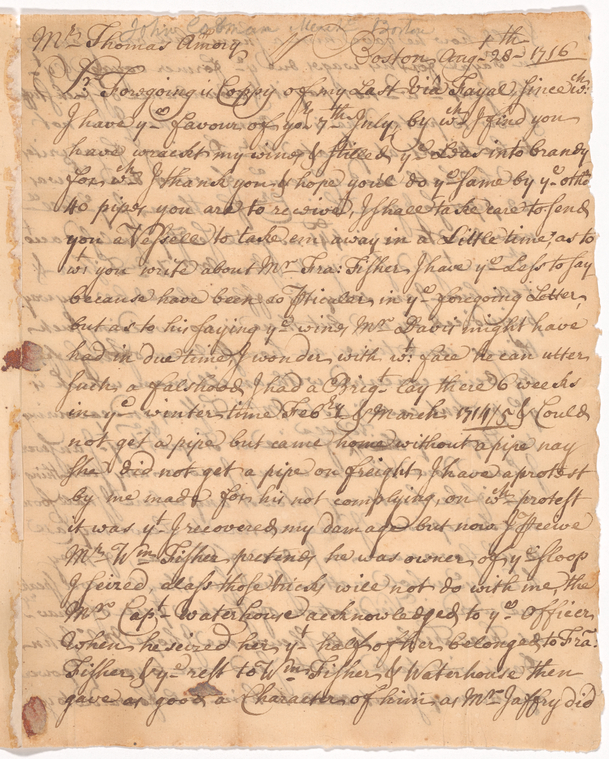 John Colman Merct Boston
Mr. Thomas Amory
Boston Aug- 28th- 1716
Sr. Foregoing is Coppy of my Last Via Fayal Since wch.
I have ye favour of yors 7th July, by wch I find you
have rackt my wines & stilled ye Leas into brandy
for wch I thank you & hope youl do ye same by ye othr
40 pipes you are to receive, I shall take care to send
you a Vessele to take em away in a Little time, as to
wt. you write about Mr Fra: Fisher I have ye Less to say
because have been so pticuler in ye foregoing Letter,
but as to his saying ye wine Mr Davis might have
had in due time, I wonder with wt. face he can utter
such a falshood, I had a Brigt. lay there 6 weeks
in ye winter time Febry & March 1714/5 & Could
not get a pipe but came home without a pipe nay
She did not get a pipe on freight, I have a protest
by me made for his not complying, on wch protest
it was yt I recovered my damage but now I pseive
Mr Wm Fisher pretends he was owner of ye sloop
I seized alass those tricks will not do with me, the
Mr Capt- Waterhouse acknowledged to ye Officer
When he seized her yt half of her belonged to Fra:
Fisher & ye rest to Wm Fisher & Waterhouse then
gave as good a Character of him as Mr Jaffry did